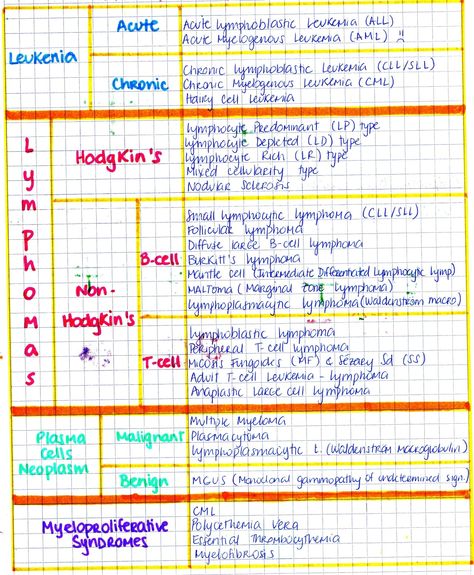 Leukenia
Acute
Acute Lymphoblastic Leukemia (ALL)
Acute Myelogenous Leukemia (AML)
Chronic
Chronic Lymphoblastic Leukemia (CLL/SLL)
Chronic Myelogenous Leukemia (CML)
Hairy cell Leukemia
Lymphomas
Hodgkin's
Lymphocyte Predominant (LP) type
Lymphocyte Depleted (LD) type
Lymphocyte Rich (LR) type
Mixed cellularity type
Nodular Sclerosis
Non-
Hodgkin's
B-cell
Small lymphocytic lymphoma (CLL/SLL)
Follicular lymphoma
Diffuse large B-cell lymphoma
Burkitt's lymphoma
Mantle cell (Intermediate Differentiated Lymphocytic lymp)
MALToma (Marginal zone lymphoma)
Lymphoplasmacytic lymphoma (Waldenstrom macro)
T-cell
Lymphoblastic lymphoma
Peripheral T-cell lymphoma
Micosis Fungoides (MF) & Sezary Sd (SS)
Adult T-cell Leukemia-lymphoma
Anaplastic Large cell lymphoma
Plasma
Cells
Neoplasm
Malignant
Multiple Myeloma
Plasmacytoma
Lymphoplasmacytic L. (Waldenstrom macroglobulin)
Benign
MGUS (Monoclonal gammopathy of undetermined sign.)
Myeloproliferative
Syndromes
CML
Polycethemia Vera
Essential Thrombocythemia
Myelofibrosis